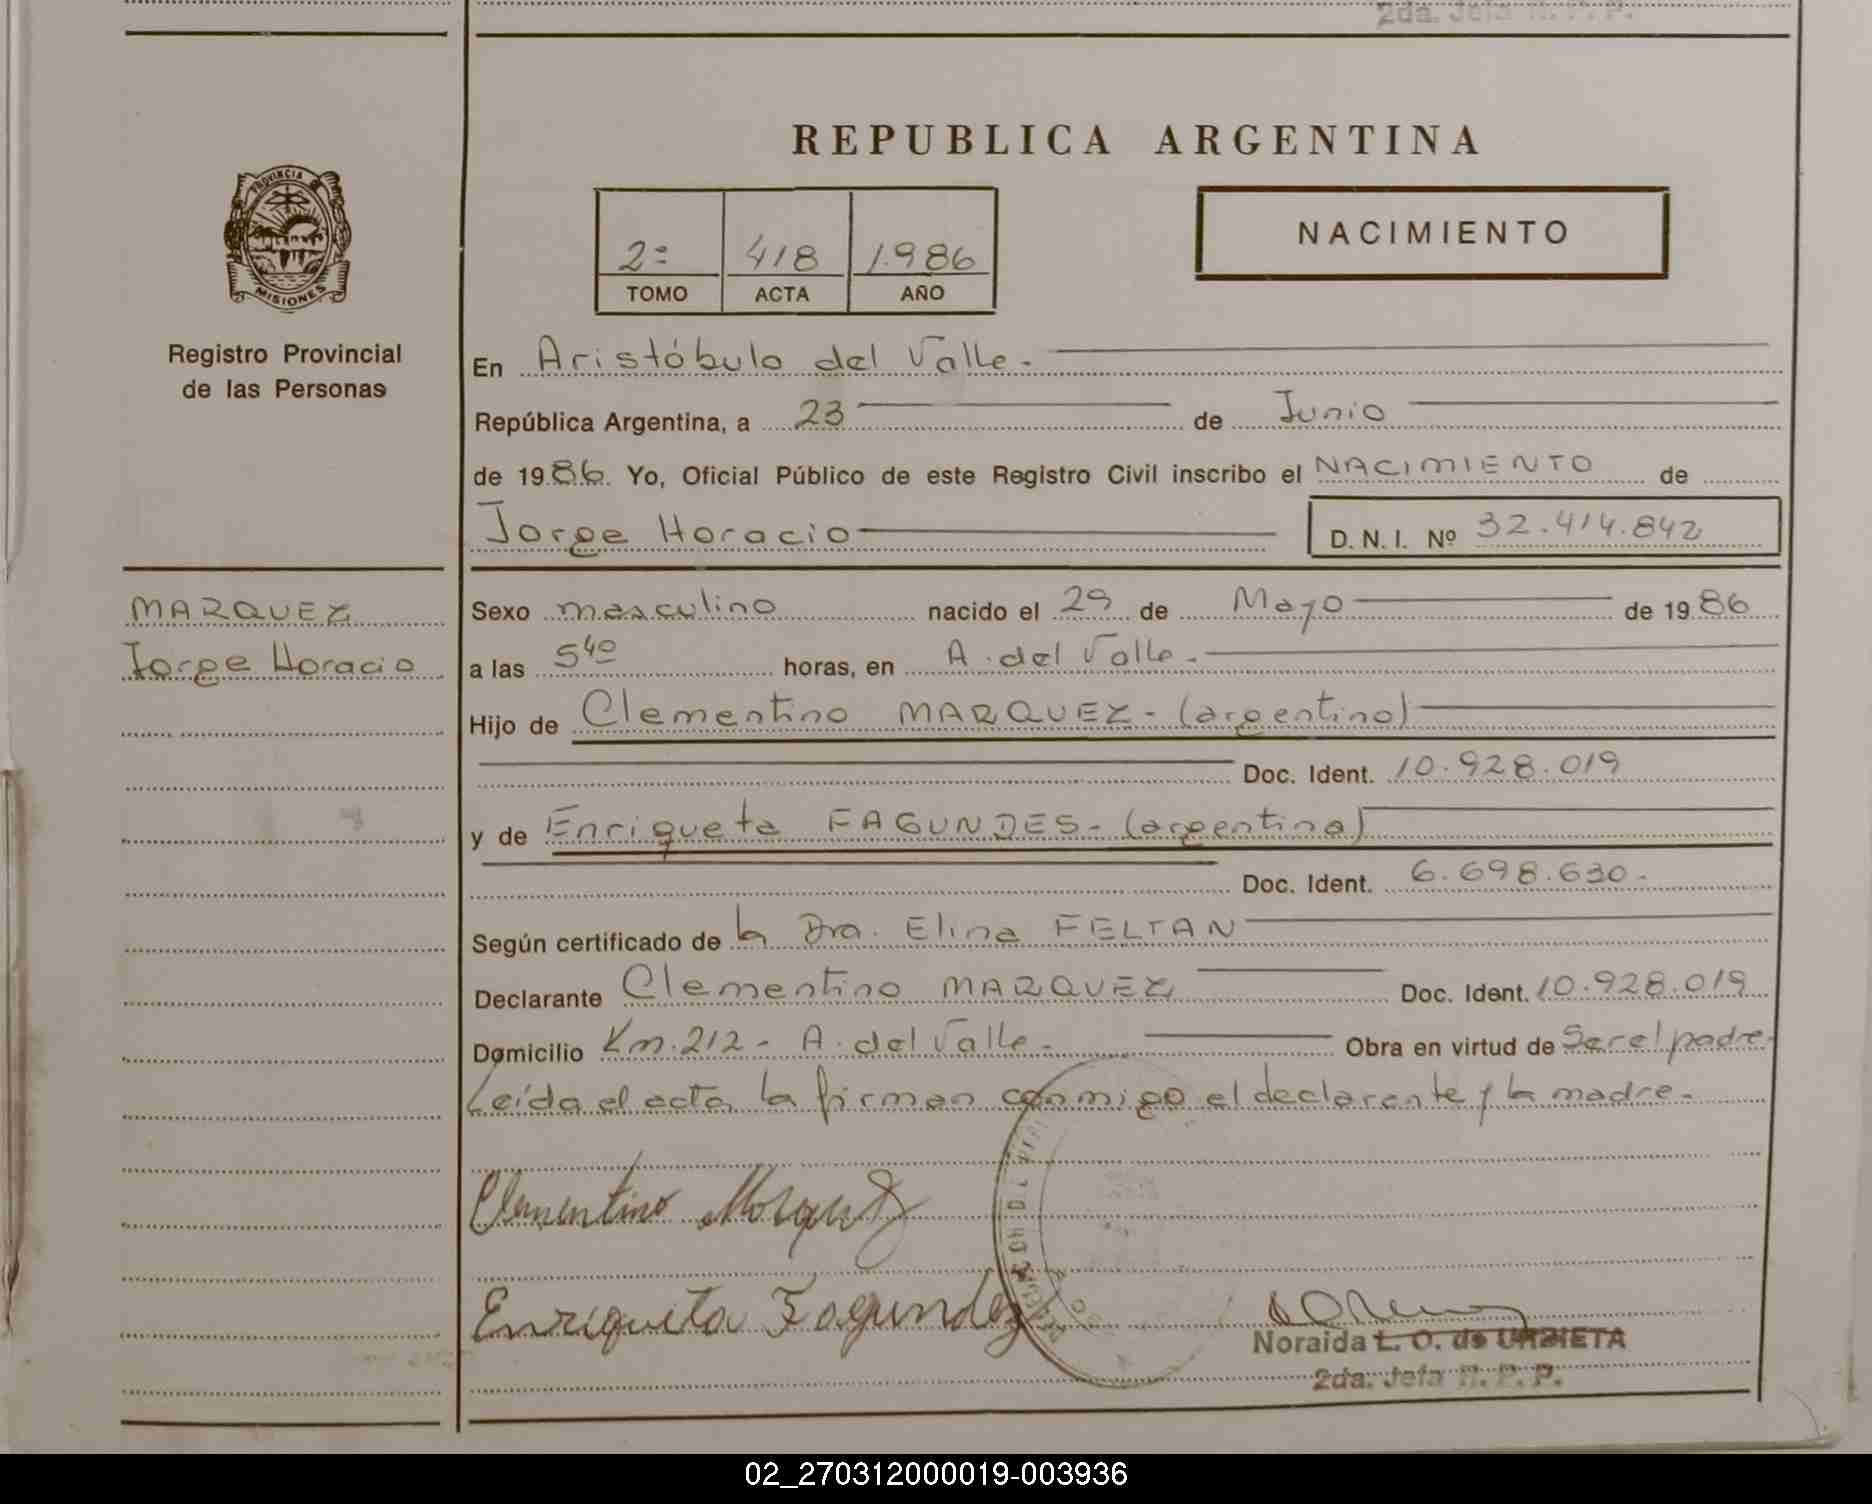 2da. Jefa R. P. P.
REPUBLICA ARGENTINA
PROVINCIA D
MISIONES
Registro Provincial
de las Personas
2º 418 1.986
TOMO ACTA AÑO
NACIMIENTO
En Aristóbulo del Valle.-
República Argentina, a 23 de Junio
de 1986. Yo, Oficial Público de este Registro Civil inscribo el NACIMIENTO de
Jorge Horacio D. N. I. Nº 32.414.842
MARQUEZ
Jorge Horacio
Sexo masculino nacido el 29 de Mayo de 1986
a las 5 40 horas, en A. del Valle.-
Hijo de Clementino MARQUEZ - (argentino)
Doc. Ident. 10.928.019
y de Enriqueta FAGUNDES - (argentina)
Doc. Ident. 6.698.630.-
Según certificado de la Dra. Elina FELTAN
Declarante Clementino MARQUEZ Doc. Ident. 10.928.019
Domicilio Km. 212 - A. del Valle.- Obra en virtud de Ser el padre.
Leída el acta la firman conmigo el declarante y la madre.-
Clementino Marquez
Enriqueta Fagundez
Noraida L. O. de URBIETA
2da. Jefa R. P. P.
02_270312000019-003936